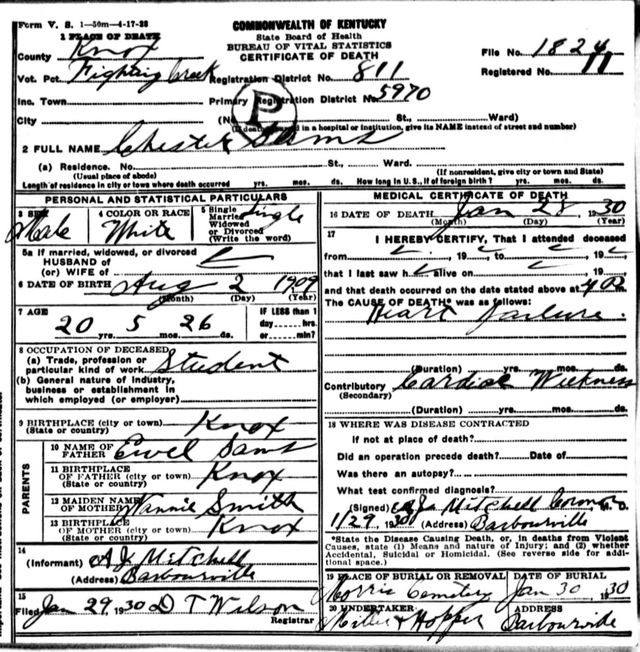 Form V. S. 1-50m-4-17-28
COMMONWEALTH OF KENTUCKY
State Board of Health
BUREAU OF VITAL STATISTICS
CERTIFICATE OF DEATH
1 PLACE OF DEATH
County Knox
File No. 1824
Vot. Pct. Fighting Creek Registration District No. 811
Registered No. 11
Inc. Town Primary Registration District No. 5970
City (No. St., Ward)
P
(If death occurred in a hospital or institution, give its NAME instead of street and number)
2 FULL NAME Chester Sams
(a) Residence. No. St., Ward.
(Usual place of abode) (If nonresident, give city or town and State)
Length of residence in city or town where death occurred yrs. mos. ds. How long in U.S., if of foreign birth? yrs. mos. ds.
PERSONAL AND STATISTICAL PARTICULARS
3 SEX Male
4 COLOR OR RACE White
5 Single Married Widowed or Divorced (Write the word) Single
5a If married, widowed, or divorced
HUSBAND of
(or) WIFE of
6 DATE OF BIRTH Aug 2 1909
(Month) (Day) (Year)
7 AGE
20 yrs. 5 mos. 26 ds.
IF LESS than 1 day---hrs. or---min?
8 OCCUPATION OF DECEASED
(a) Trade, profession or
particular kind of work Student
(b) General nature of industry,
business or establishment in
which employed (or employer)
9 BIRTHPLACE (city or town) Knox
(State or country)
PARENTS
10 NAME OF
FATHER Ewel Sams
11 BIRTHPLACE
OF FATHER (city or town) Knox
(State or country)
12 MAIDEN NAME
OF MOTHER Nannie Smith
13 BIRTHPLACE
OF MOTHER (city or town) Knox
(State or country)
14
(Informant) A J Mitchell
(Address) Barbourville
15
Filed Jan 29, 1930 D T Wilson
Registrar
MEDICAL CERTIFICATE OF DEATH
16 DATE OF DEATH Jan 28, 1930
(Month) (Day) (Year)
17
I HEREBY CERTIFY, That I attended deceased
from , 19 , to , 19
that I last saw h alive on , 19
and that death occurred on the date stated above at
The CAUSE OF DEATH* was as follows:
Heart failure.
(Duration) yrs. mos. ds.
Contributory Cardiac Weekness
(Secondary)
(Duration) yrs. mos. ds.
18 WHERE WAS DISEASE CONTRACTED
If not at place of death?
Did an operation precede death? Date of
Was there an autopsy?
What test confirmed diagnosis?
(Signed) A J Mitchell Coronor M. D.
1/29, 1930 (Address) Barbourville
*State the Disease Causing Death, or, in deaths from Violent
Causes, state (1) Means and nature of Injury; and (2) whether
Accidental, Suicidal or Homicidal. (See reverse side for addi-
tional space.)
19 PLACE OF BURIAL OR REMOVAL
Morris Cemetery
DATE OF BURIAL
Jan 30 1930
20 UNDERTAKER
Miller & Hopper
ADDRESS
Barbourville